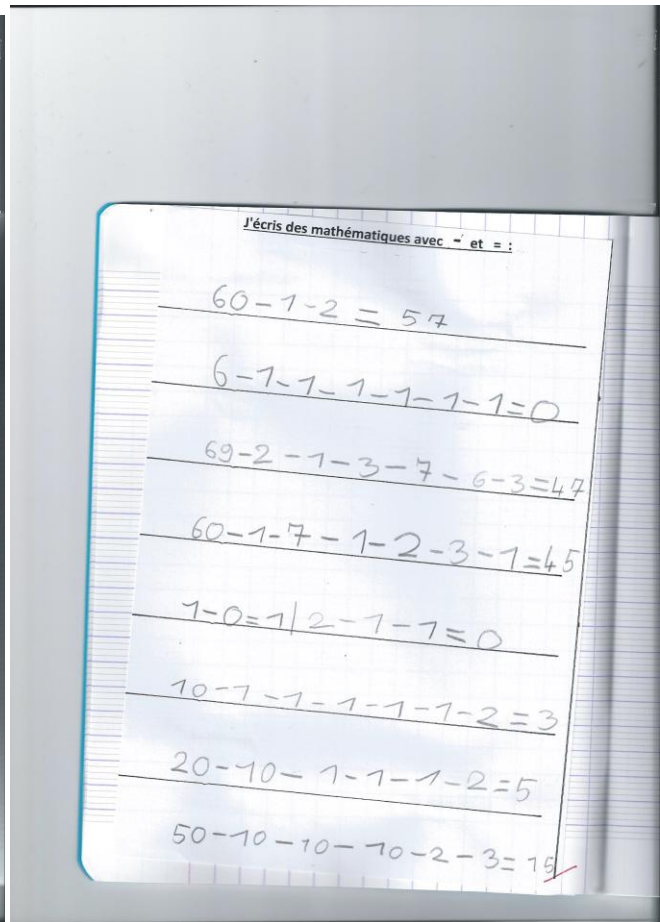 J'écris des mathématiques avec - et = :
60-1-2 = 57
6-1-1-1-1-1-1=0
69-2-1-3-7-6-3=47
60-1-7-1-2-3-1=45
1-0=1| 2-1-1=0
10-1-1-1-1-1-2=3
20-10-1-1-1-2=5
50-10-10-10-2-3=15